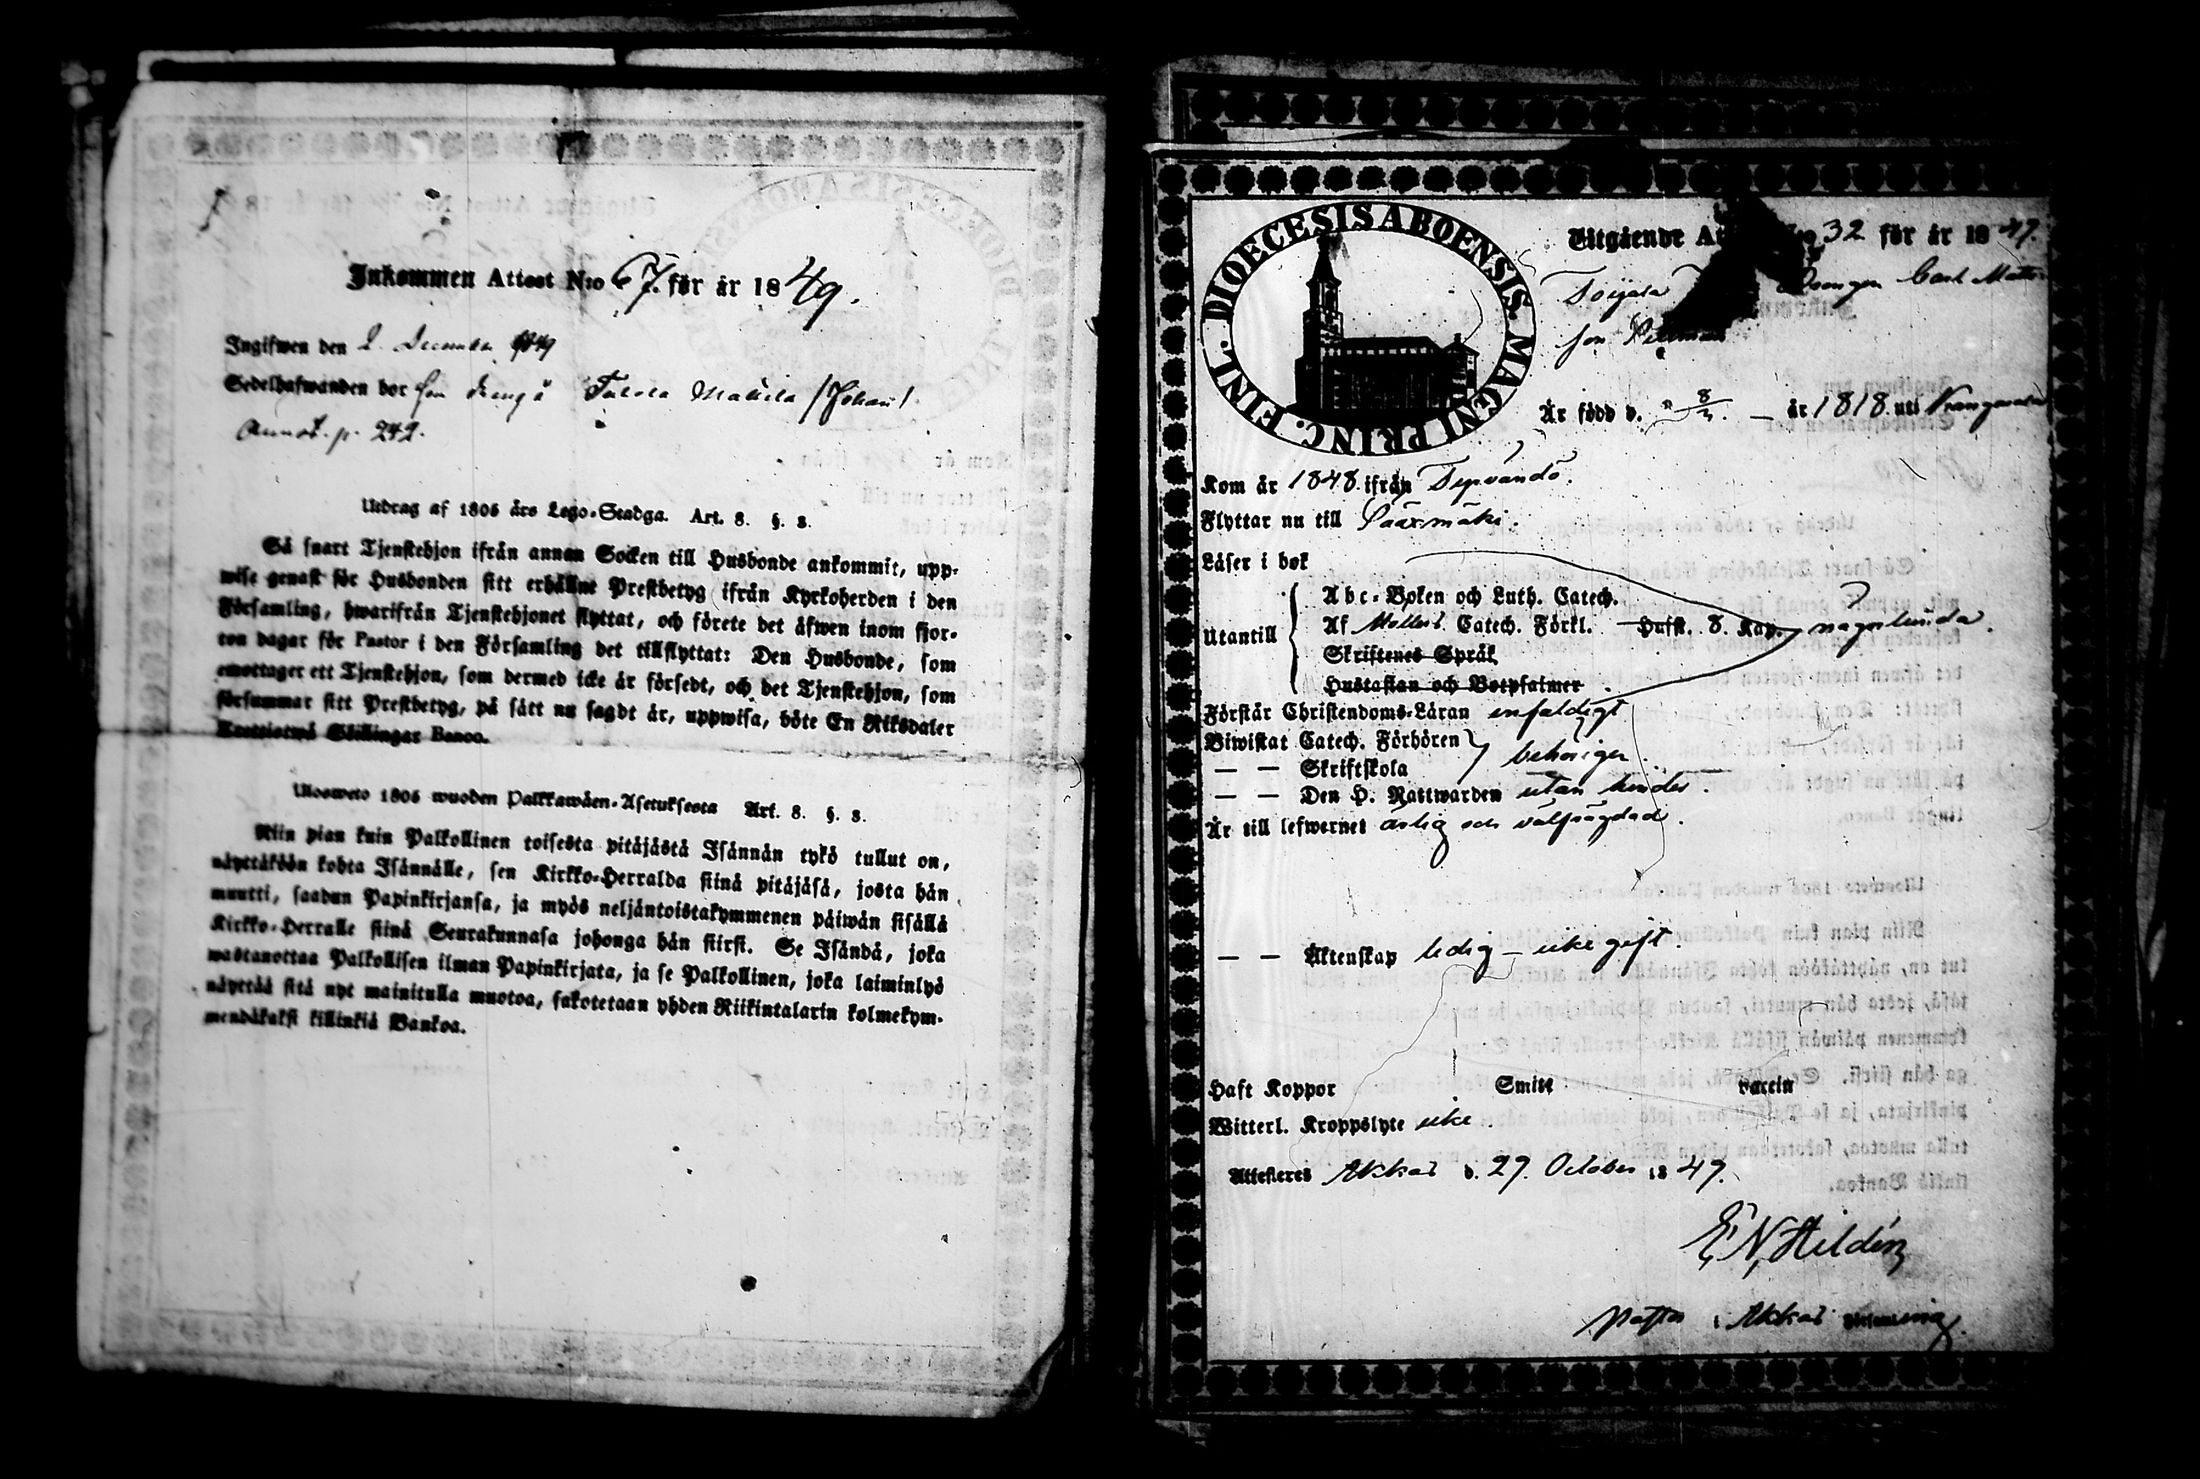 Inkommen Attest N:o 67. för år 1849.
Ingifwen den 2 December 1849
Sedelhafwanden bor som dreng å Tulola Mattila /Johan/
Annot. p. 242.
Utdrag af 1805 års Lego-Stadga. Art. 8. §. 8.
Så snart Tjenstehjon ifrån annan Socken till Husbonde ankommit, upp-
wise genast för Husbonden sitt erhållne Prestbetyg ifrån Kyrkoherden i den
Församling, hwarifrån Tjenstehjonet flyttat, och förete det äfwen inom fjor-
ton dagar för Pastor i den Församling det tillflyttat: Den Husbonde, som
emottager ett Tjenstehjon, som dermed icke är försedt, och det Tjenstehjon, som
försummar sitt Prestbetyg, på sätt nu sagdt är, uppwisa, böte En Riksdaler
Trettiotwå Skillingar Banco.
Ulosweto 1805 wuoden Palkkawäen-Asetuksesta Art. 8. §. 8.
Niin pian kuin Palkollinen toisesta pitäjästä Isännän tykö tullut on,
näyttäköön kohta Isännälle, sen Kirkko-Herralda siinä pitäjäsä, josta hän
muutti, saadun Papinkirjansa, ja myös neljäntoistakymmenen päiwän sisällä
Kirkko-Herralle siinä Seurakunnasa johonga hän siirsi. Se Isändä, joka
wastanottaa Palkollisen ilman Papinkirjata, ja se Palkollinen, joka laiminlyö
näyttää sitä nyt mainitulla muotoa, sakotetaan yhden Riikintalarin kolmekym-
mendäkaksi killinkiä Bankoa.
DIOECESIS ABOENSIS. MAGNI PRINC. FINL.
Utgående At 32 för år 1849.
Toijala Drengen Carl Matts
son
Är född d. 8/ år 1818 uti
Kom år 1848 ifrån
Flyttar nu till Sääxmäki.
Läser i bok
Utantill
Abc-Boken och Luth. Catech.
Af Catech. Förkl. Hust. 8. Kap. någorlunda.
Skriftenes Språk
Hustaflan och Botpsalmer
Förstår Christendoms-Läran enfaldigt
Biwistat Catech. Förhören
— — Skriftskola behörigen
— — Den H. Nattwarden utan hinder.
Är till lefwernet ärlig och välfrägdad.
— — Äktenskap ledig — icke gift.
Haft Koppor Smitt vaccin
Witterl. Kroppslyte icke
Attesteres Akkas d. 29. October 1849.
E. N. Hildén
Pastor i Akkas Församling.